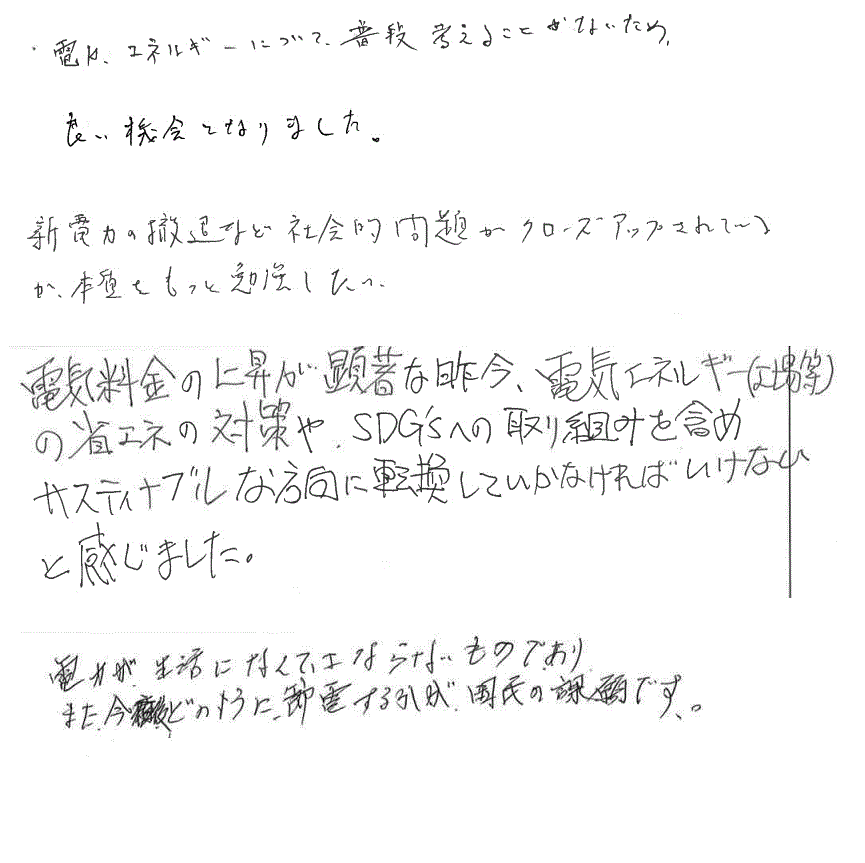 ・電力、エネルギーについて、普段考えることがないため、
良い機会となりました。
新電力の撤退など社会的問題がクローズアップされている
が、本質をもっと勉強したい。
電気料金の上昇が顕著な昨今、電気エネルギー(工場等)
の省エネの対策や、SDG'sへの取り組みを含め
サスティナブルな方向に転換していかなければいけない
と感じました。
電力が、生活になくてはならないものであり
また、今後どのように、節電するかが、国民の課題です、。